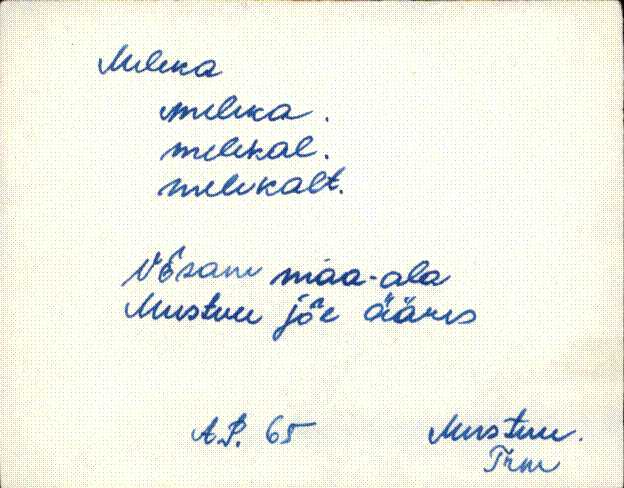 Meleka
meleka.
melekal.
melekalt.
Võsane maa-ala
Mustvee jõe ääres
A.P. 65
Mustvee.
Trm